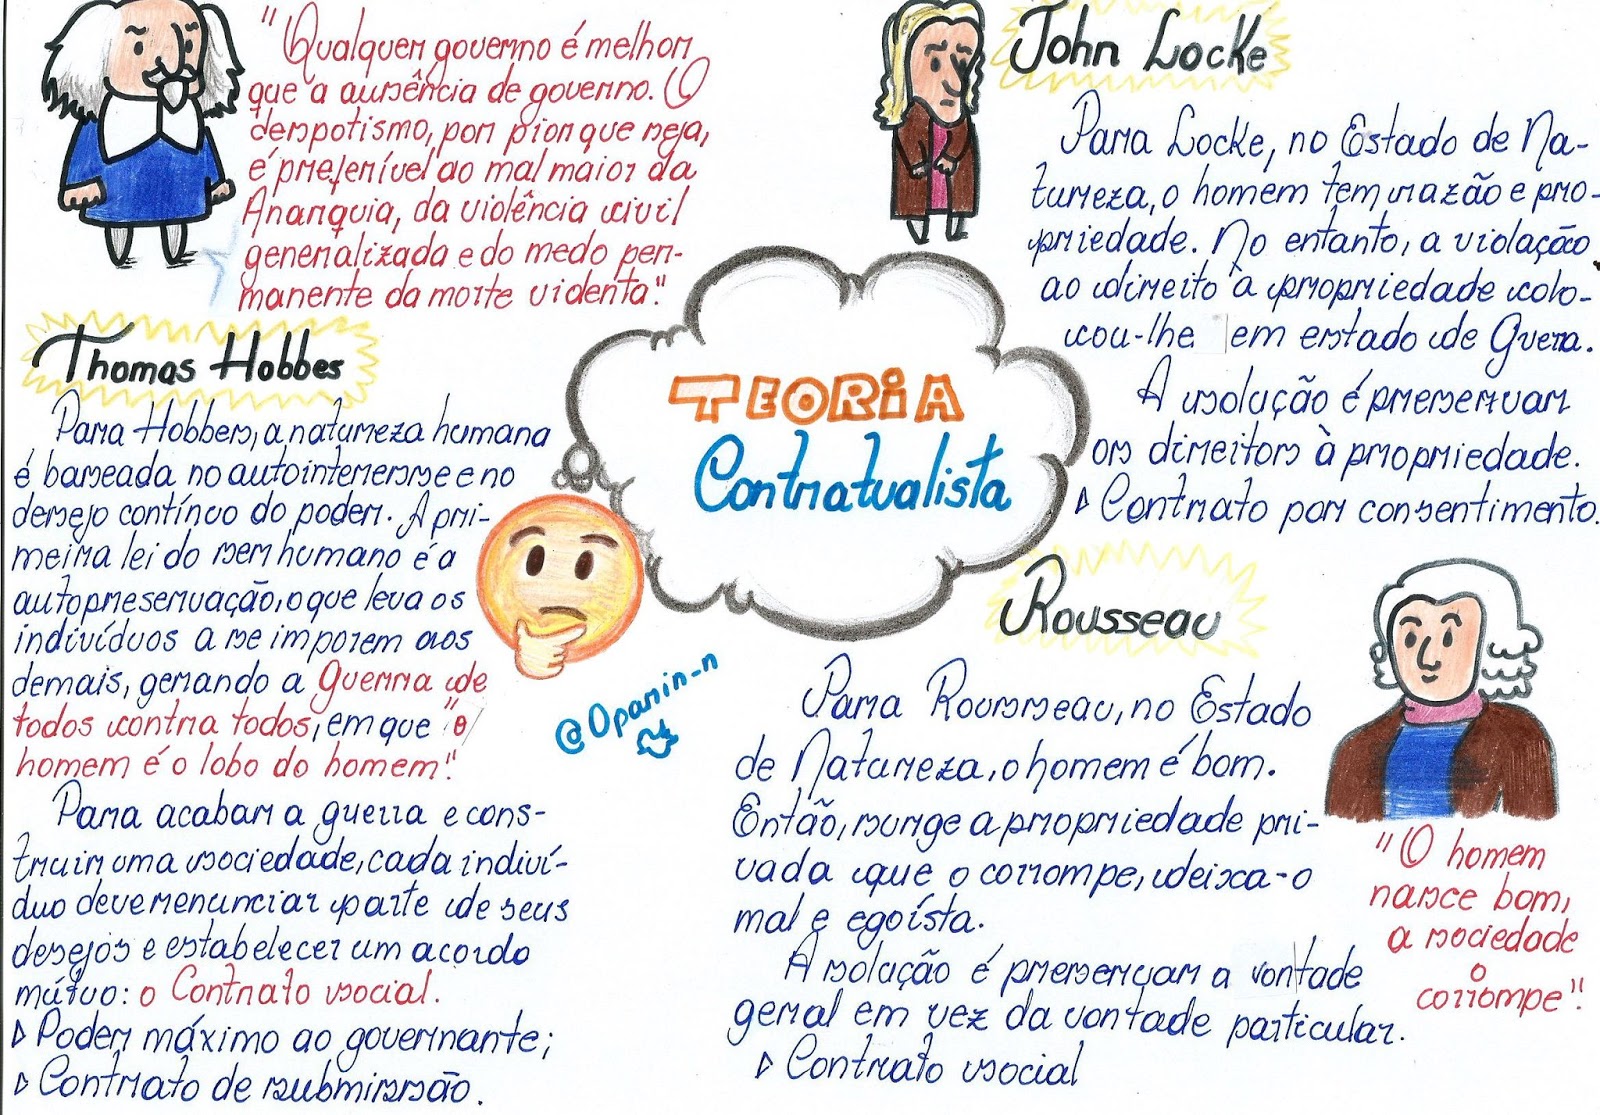 "Qualquer governo é melhor
que a ausência de governo. O
despotismo, por pior que seja,
é preferível ao mal maior da
Anarquia, da violência civil
generalizada e do medo per-
manente da morte videnta".
Thomas Hobbes
Para Hobbes, a natureza humana
é baseada no autointeresse e no
desejo contínuo do poder. A pri-
meira lei do ser humano é a
autopreservação, o que leva os
indivíduos a se imporem aos
demais, gerando a Guerra de
todos contra todos, em que "o
homem é o lobo do homem".
Para acabar a guerra e cons-
truir uma sociedade, cada indiví-
duo deve renunciar parte de seus
desejos e estabelecer um acordo
mútuo: o Contrato social.
▷ Poder máximo ao governante;
▷ Contrato de submissão.
TEORIA
Contratualista
@Oparin_n
John Locke
Para Locke, no Estado de Na-
tureza, o homem tem razão e pro-
priedade. No entanto, a violação
ao direito à propriedade colo-
cou-lhe em estado de Guerra.
A solução é preservar
os direitos à propriedade.
▷ Contrato por consentimento.
Rousseau
Para Rousseau, no Estado
de Natureza, o homem é bom.
Então, surge a propriedade pri-
vada que o corrompe, deixa-o
mal e egoísta.
A solução é preservar a vontade
geral em vez da vontade particular.
▷ Contrato social
"O homem
nasce bom,
a sociedade
o
corrompe".